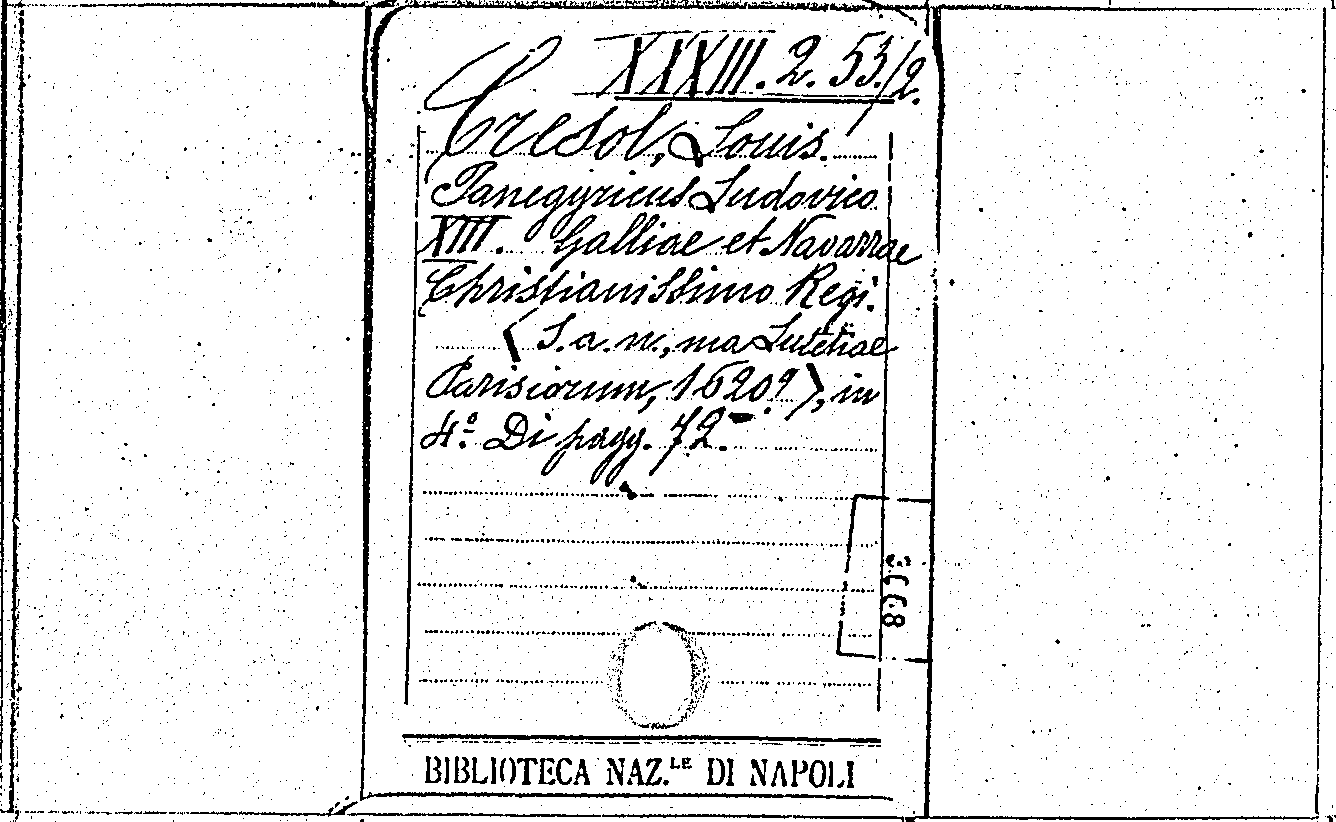 XXXIII. 2. 53./2.
Cresol, Louis.
Panegyricus Ludovico
XIII. Galliae et Navarrae
Christianissimo Regi.
(S. a. n., ma Lutetiae
Parisiorum, 1620?), in
4º. Di pagg. 72.
BIBLIOTECA NAZ.LE DI NAPOLI